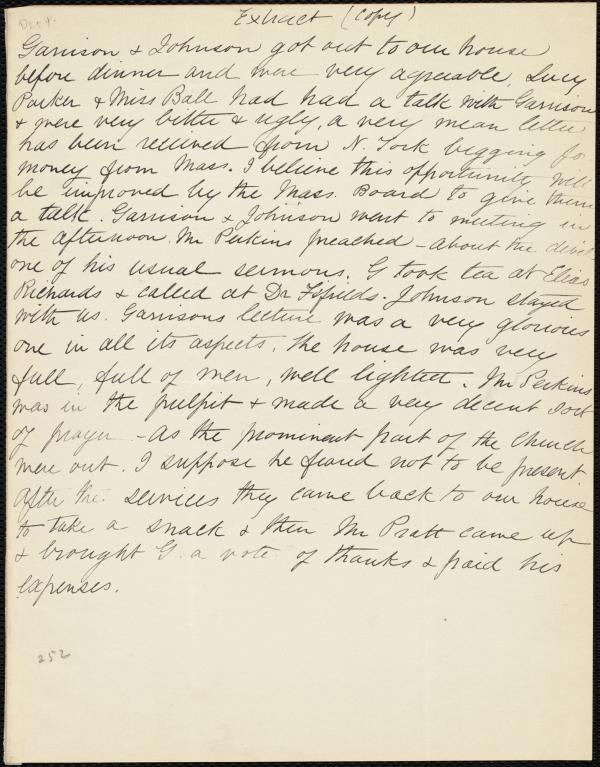 Extract (Copy)
Garrison & Johnson got out to our house
before dinner and were very agreeable. Lucy
Parker & Miss Ball had had a talk with Garrison
& were very bitter & ugly, a very mean letter
has been received from N. York begging for
money from Mass. I believe this opportunity will
be improved by the Mass. Board to give them
a talk. Garrison & Johnson went to meeting in
the afternoon. Mr Perkins preached - about the devil
one of his usual sermons. G took tea at Elias
Richards & called at Dr Fifields. Johnson stayed
with us. Garrisons lecture was a very glorious
one in all its aspects. The house was very
full, full of men, well lighted. Mr Perkins
was in the pulpit & made a very decent sort
of prayer - As the prominent part of the Church
were out. I suppose he feared not to be present.
After the services they came back to our house
to take a snack & then Mr Pratt came up
& brought G. a vote of thanks & paid his
expenses.
252